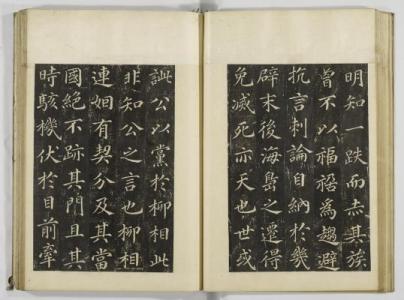 明知一跌而赤其族
曾不以福禍為趨避
抗言刺論自納於幾
辟末後海島之遷得
免滅死亦天也世或
訿公以黨於柳相此
非知公之言也柳相
連姻有契分及其當
國絕不跡其門且其
時駭機伏於目前